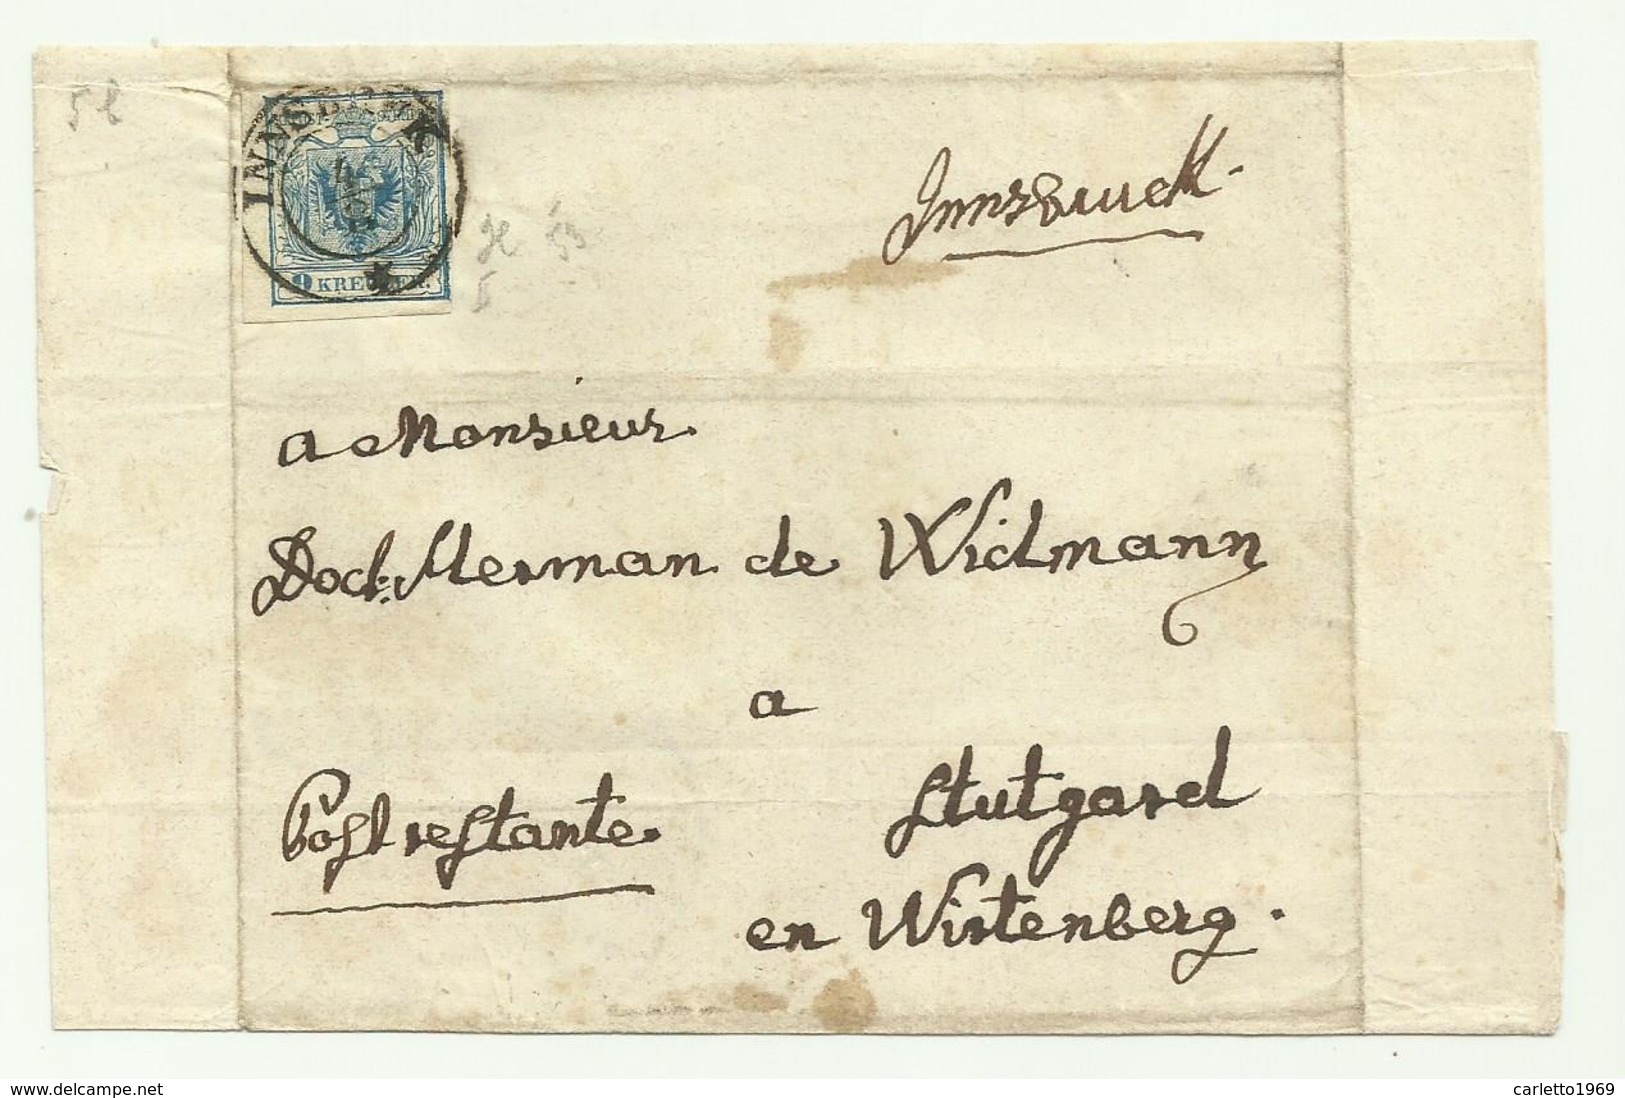 5 b
INNSBRUCK
9 KREUZER.
Innsbruck.
a Monsieur
Doct: Herman de Widmann
a
Postrestante.
Stutgard
en Wirtenberg.
www.delcampe.net
carletto1969